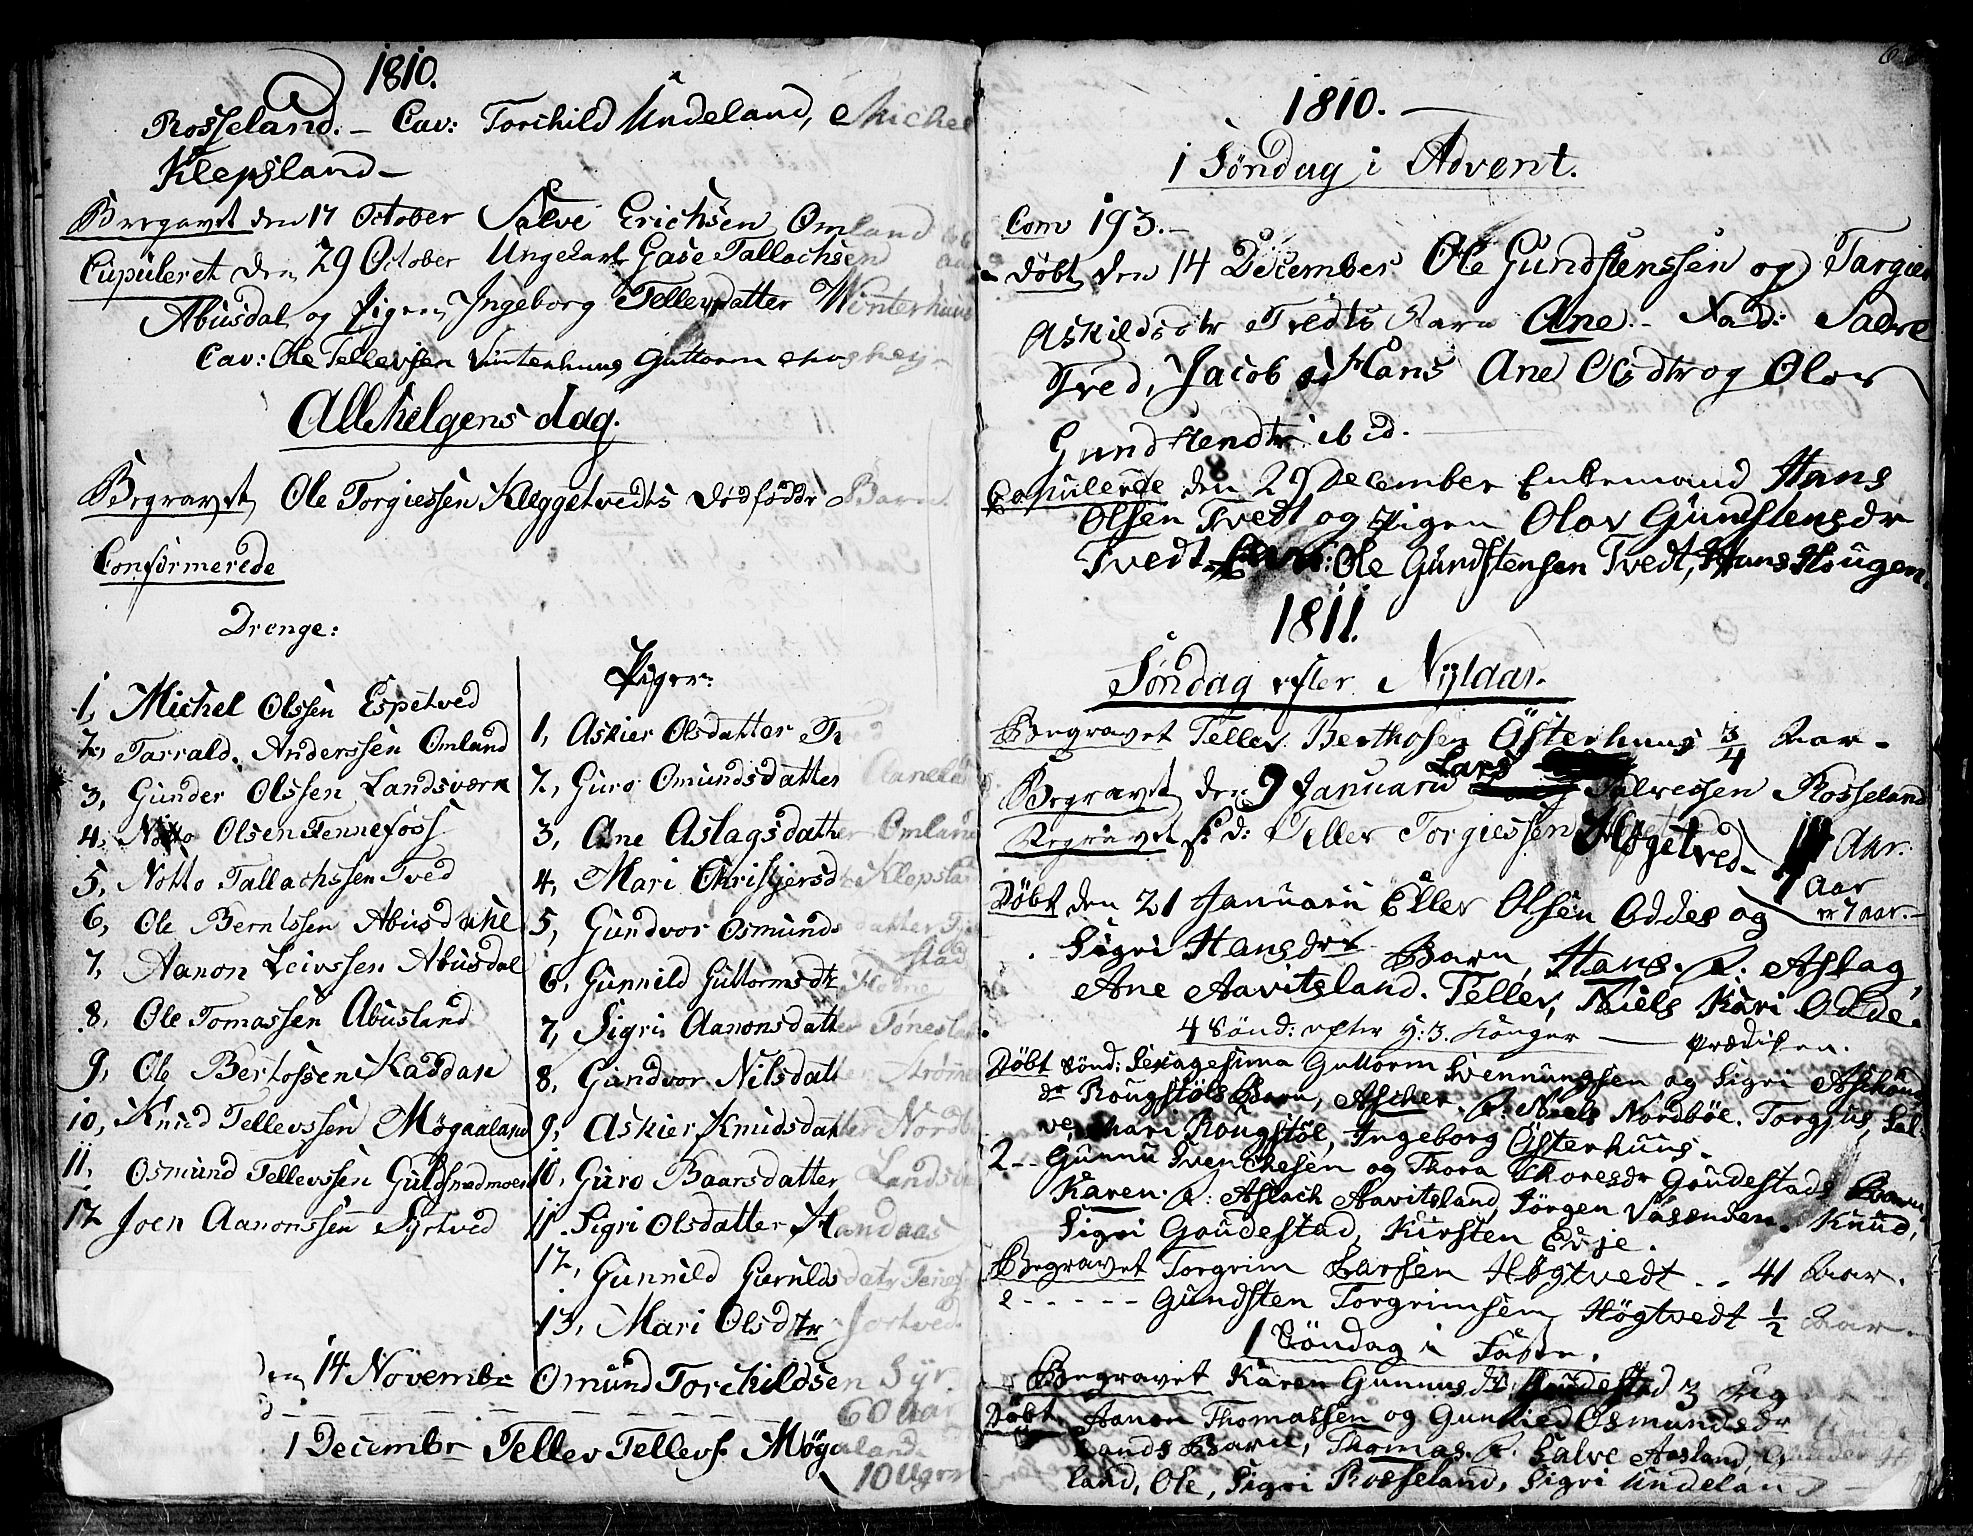 1810.
Rosseland. – Cav: Torchild Undeland, Michel
Klepsland –
Begravet den 17 October Salve Erichsen Omland
Cupuleret den 29 October Ungekarl Gase Tallachsen
Abusdal og Pigen Ingeborg Tellevsdatter Winterhuus
Cav: Ole Tellevsen Vinterhuus Guttorm
Allehelgens dag.
Begravet Ole Torgiessen Kleggetvedts dødfødde Barn.
Confirmerede
Drenge:
1, Michel Olssen Espetved
2, Tarrald. Anderssen Omland
3, Gunder Olssen Landsværk
4, Notto Olsen Fennefoss
5, Notto Tallachssen Tved
6, Ole Berntssen Abusdahl
7, Aanon Leivssen Abusdal
8, Ole Tomassen Abusland
9, Ole Bertossen Kaddan
10, Knud Tellevssen Møgaaland
11, Osmund Tellevssen Guldsmedmoen
12 Joen Aanonssen Syrtved
Piger:
1, Askier Olsdatter
2, Guro Omundsdatter
3, Ane Aslagsdatter Omland
4, Mari Christjersd Klepsland
5, Gundvor Osmundsdatter
stad
6, Gunnild Guttormsdtr
7, Sigri Aanonsdatter
8, Gundvor Nilsdatter
9, Askier Knudsdatter
10, Guro Baarsdatter
11, Sigri Olsdatter Handaas
12, Gunnild Gunulds datr
13, Mari Olsdtr
den 14 Novembr Omund Torchildsen Syr
60 aar
1 Decembr Tellev Tellevs. Møgaaland
10 Uger
1810. –
1 Søndag i Advent.
Com 193. –
Døbt den 14 December Ole Gundstenssen og Targier
Askildsdtr Tvedts Barn Ane. – Fad: Salve
Tved, Jacob og Hans Ane Olsdtr og Olov
Gundstendtr ibid.
Copulerede den 29 December Enkemand Hans
Olsen Tvedt og Pigen Olov Gundstensdr
Tvedt – Cav: Ole Gundstensen Tvedt, Hans Hougen.
1811.
Søndag efter Nytaar.
Begravet Tellev Berthosen Østerhuus 3/4 Aar –
Begravet den 9 Januarii Lars Salvessen Rosseland
Begravet s. d: Tellev Torgiessen Høgetved –
Aar.
Aar
er 7 aar. –
Døbt den 21 Januarii Ellev Olsen Oddes og
Sigri Hansdtr Barn, Hans. F: Aslag,
Ane Aavitsland. Tellev, Niels Kari Odde.
4 Sönd: efter H: 3. Konger — Prædiken.
Døbt Sönd: Sexagesima Guttorm Svennungsen og Sigri
dr Rougstøls Barn, Ascher. F: Niels Nordbøe. Torgjus, Sal-
ve, Mari Rougstøl, Ingeborg Østerhuus.
2 – – Gunnu Svenchesen og Thora Thoresdr Goudestads Barn,
Karen. F: Aslach Aavitsland, Jörgen Vasenden. Knud,
Sigri Goudestad, Kirsten Evje.
Begravet Torgrim Larsen Høgtvedt – – 41 Aar.
2 – – – – – Gundsten Torgrimsen Høgtvedt 1/2 Aar –
1 Söndag i Faste.
Begravet Karen Gunnusdr Goudestad 3 Ug
Døbt Aanon Thomassen og Gunnild Osmundsdr
lands Barn, Thomas. F. Salve Aasland,
land, Ole, Sigri Rosseland, Sigri Undeland